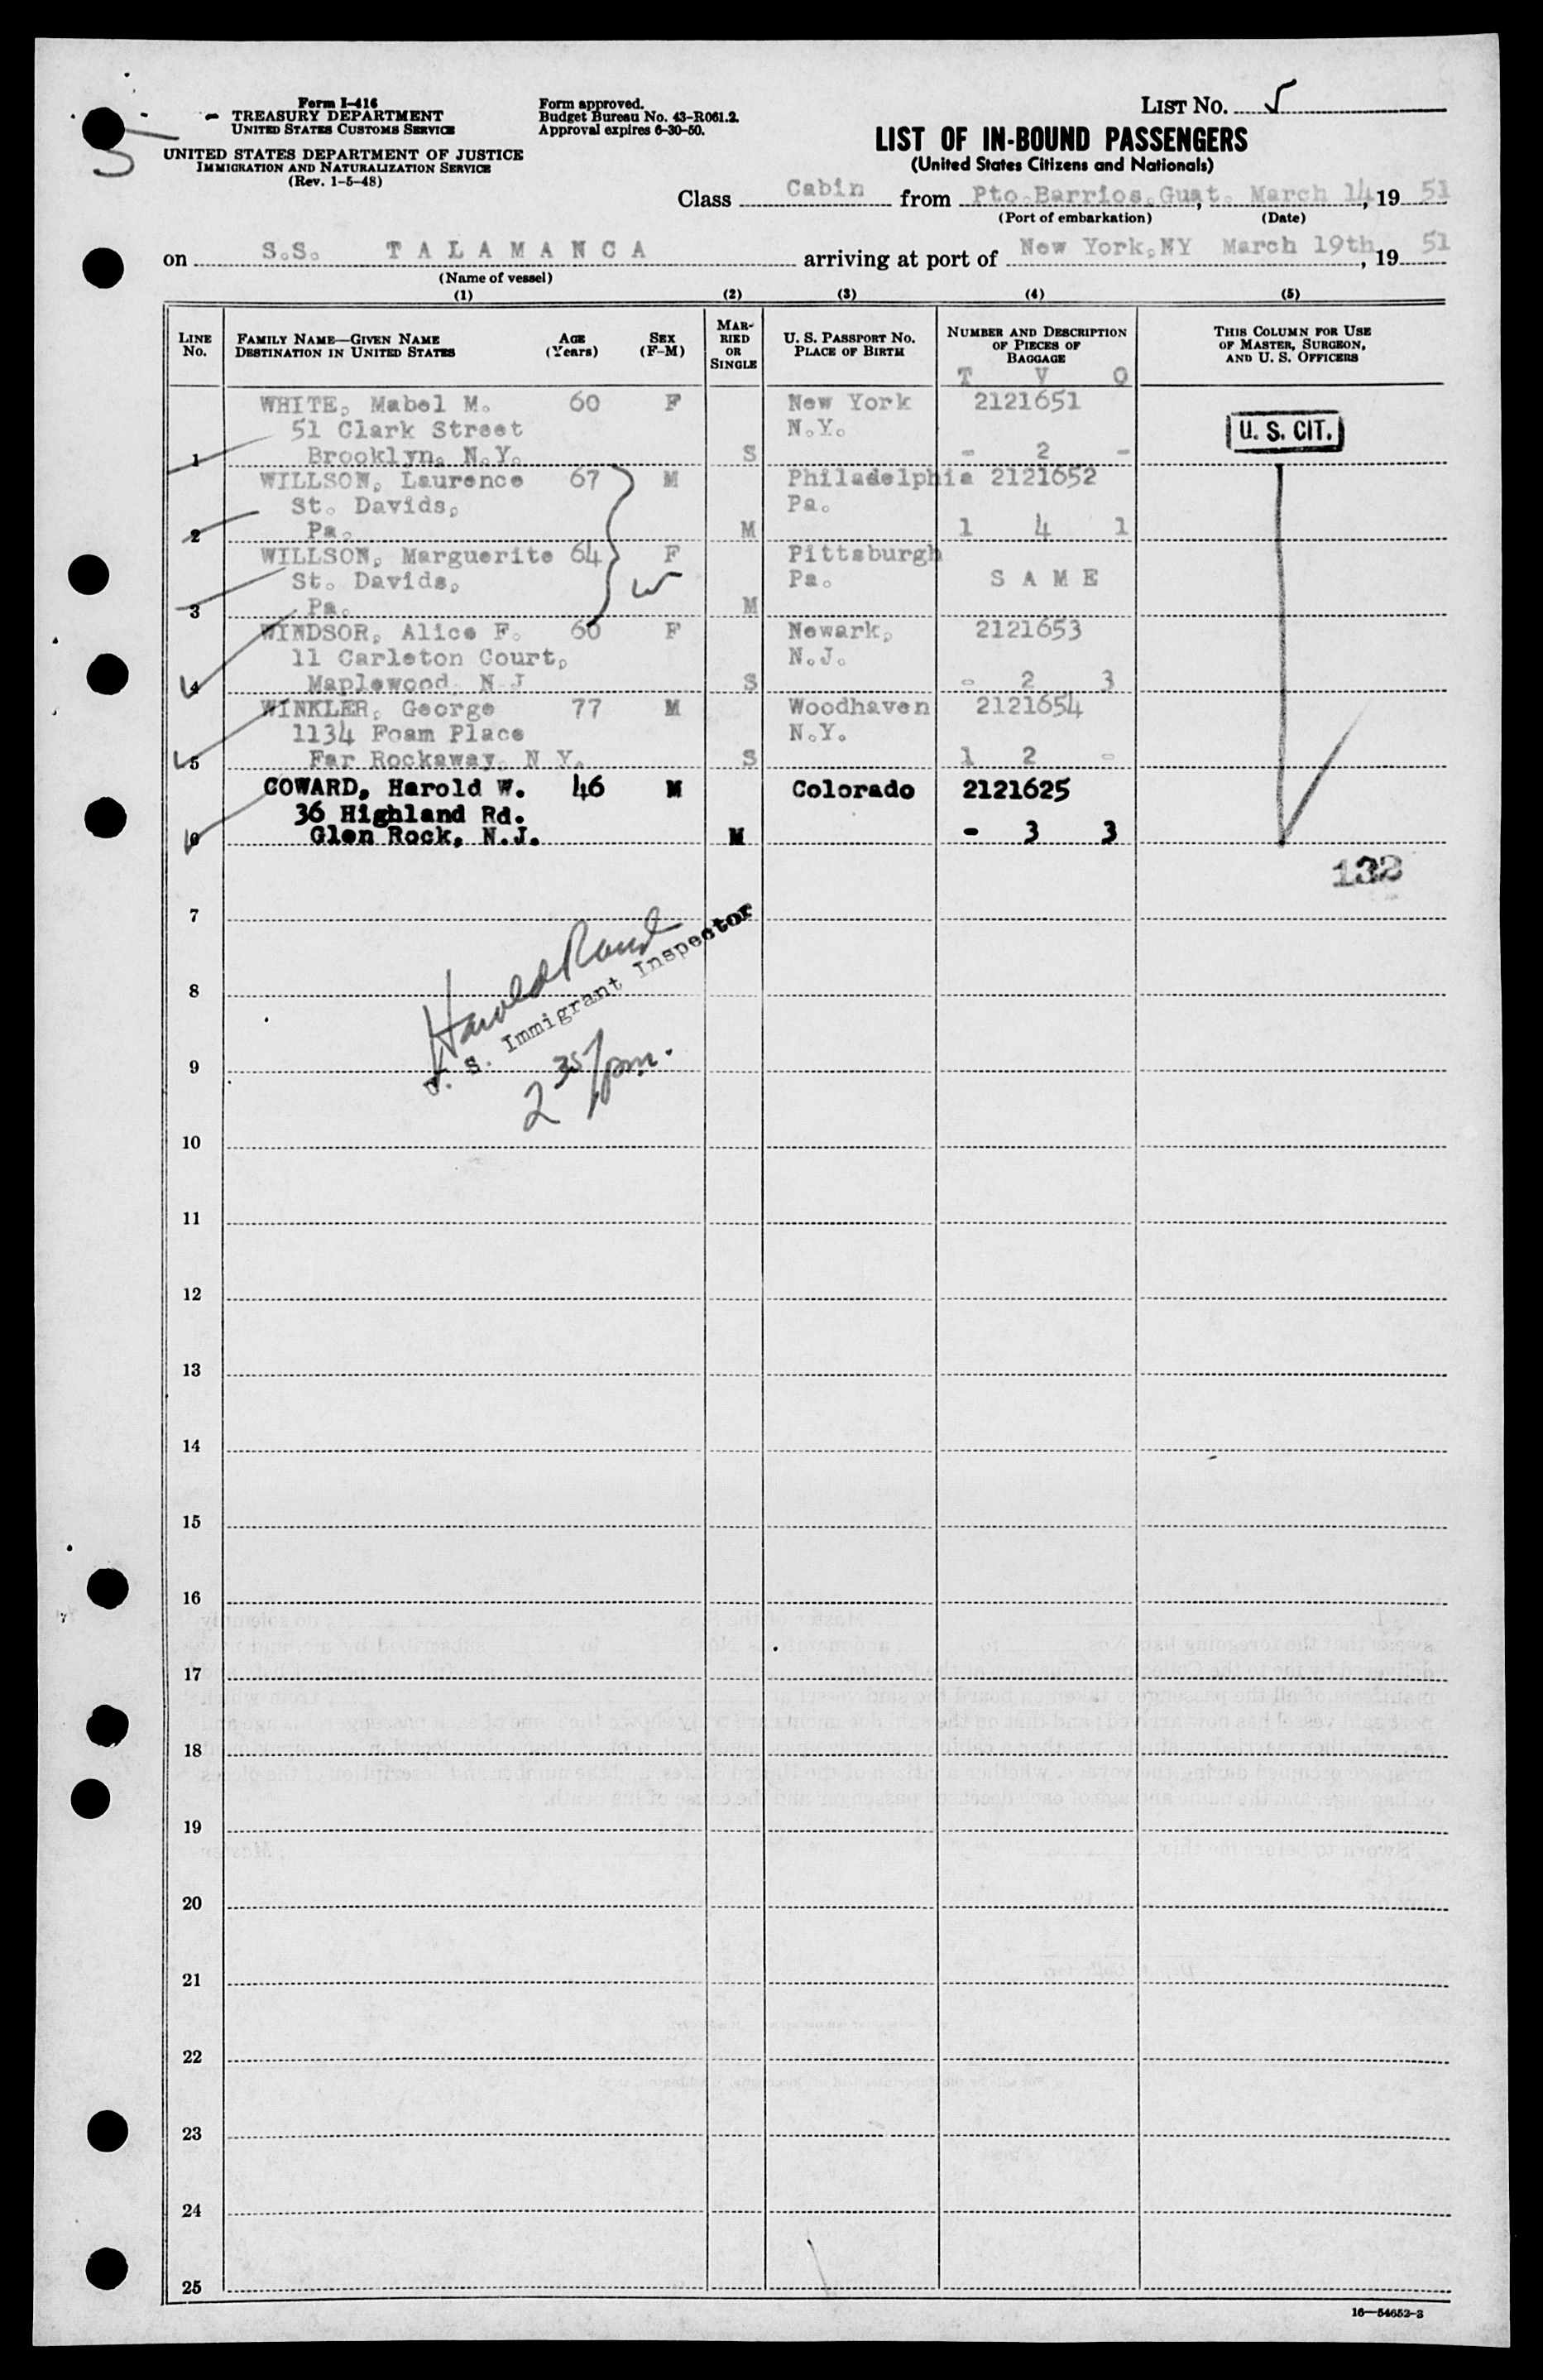 Form I-416
TREASURY DEPARTMENT
UNITED STATES CUSTOMS SERVICE
UNITED STATES DEPARTMENT OF JUSTICE
IMMIGRATION AND NATURALIZATION SERVICE
(Rev. 1-5-48)
Form approved.
Budget Bureau No. 43-R061.2.
Approval expires 6-30-50.
LIST No. 5
5
LIST OF IN-BOUND PASSENGERS
(United States Citizens and Nationals)
Class Cabin from Pto.Barrios.Guat., March 14, 19 51
(Port of embarkation) (Date)
on S.S. TALAMANCA arriving at port of New York,NY March 19th, 19 51
(Name of vessel)
(1) (2) (3) (4) (5)
LINE No. FAMILY NAME—GIVEN NAME DESTINATION IN UNITED STATES AGE (Years) SEX (F-M) MARRIED OR SINGLE U. S. PASSPORT No. PLACE OF BIRTH NUMBER AND DESCRIPTION OF PIECES OF BAGGAGE THIS COLUMN FOR USE OF MASTER, SURGEON, AND U. S. OFFICERS
T V O
WHITE, Mabel M. 60 F New York 2121651
51 Clark Street N.Y. U. S. CIT.
1 Brooklyn, N.Y. S - 2 -
WILLSON, Laurence 67 M Philadelphia 2121652
St. Davids, Pa.
2 Pa. M 1 4 1
WILLSON, Marguerite 64 F Pittsburgh
St. Davids, Pa. S A M E
3 Pa. M
WINDSOR, Alice F. 60 F Newark, 2121653
11 Carleton Court, N.J.
4 Maplewood, N J S - 2 3
WINKLER, George 77 M Woodhaven 2121654
1134 Foam Place N.Y.
5 Far Rockaway, N Y. S 1 2 -
COWARD, Harold W. 46 M Colorado 2121625
36 Highland Rd.
6 Glen Rock, N.J. M - 3 3
132
7
8
Harold
U. S. Immigrant Inspector
9
2 35/pm.
10
11
12
13
14
15
16
17
18
19
20
21
22
23
24
25
16—54652-3